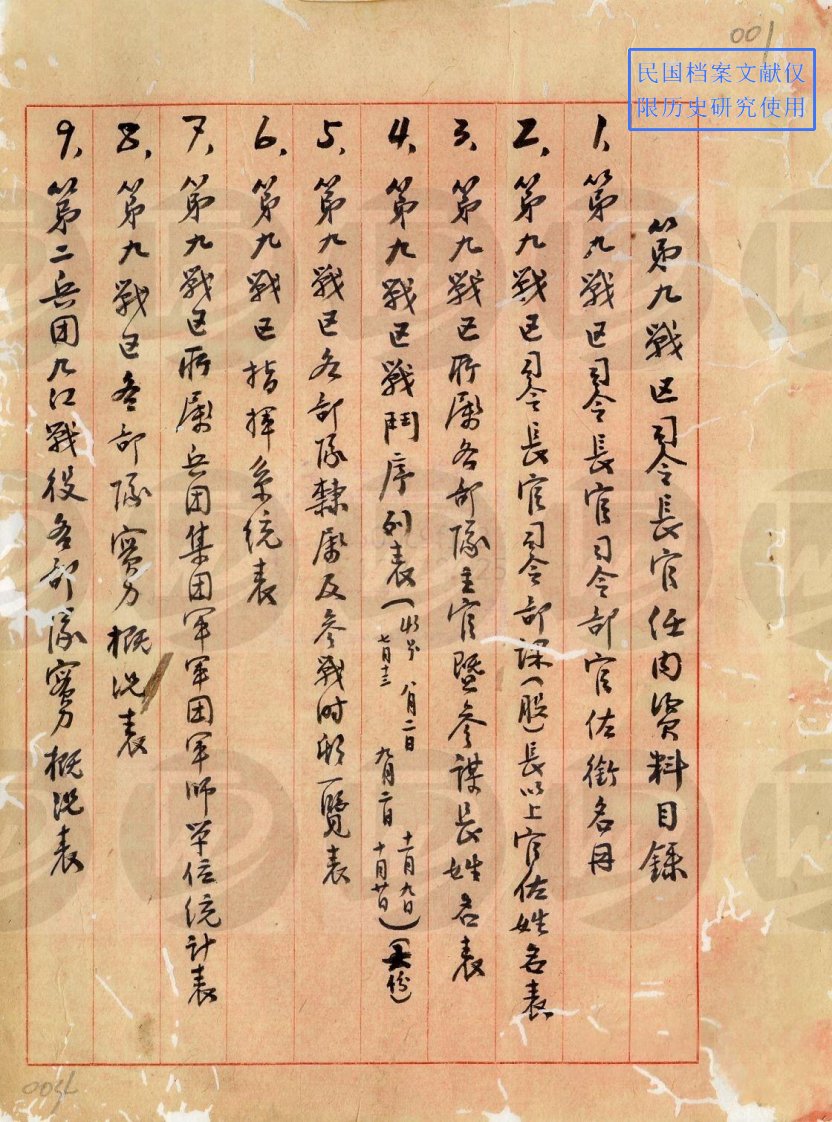 001
民国档案文献仅
限历史研究使用
第九戰区司令長官任内資料目錄
1、第九戰区司令長官司令部官佐銜名冊
2、第九戰区司令長官司令部課(股)長以上官佐姓名表
3、第九戰区所屬各部隊主官暨參謀長姓名表
4、第九戰区戰鬥序列表(七月十三 八月二日 九月二日 十一月九日 十月廿日)(五份)
5、第九戰区各部隊隸屬及參戰时形一覽表
6、第九戰区指揮系統表
7、第九戰区所屬兵团集团軍軍团軍師单位統計表
8、第九戰区各部隊實力概況表
9、第二兵团九江戰役各部隊實力概況表